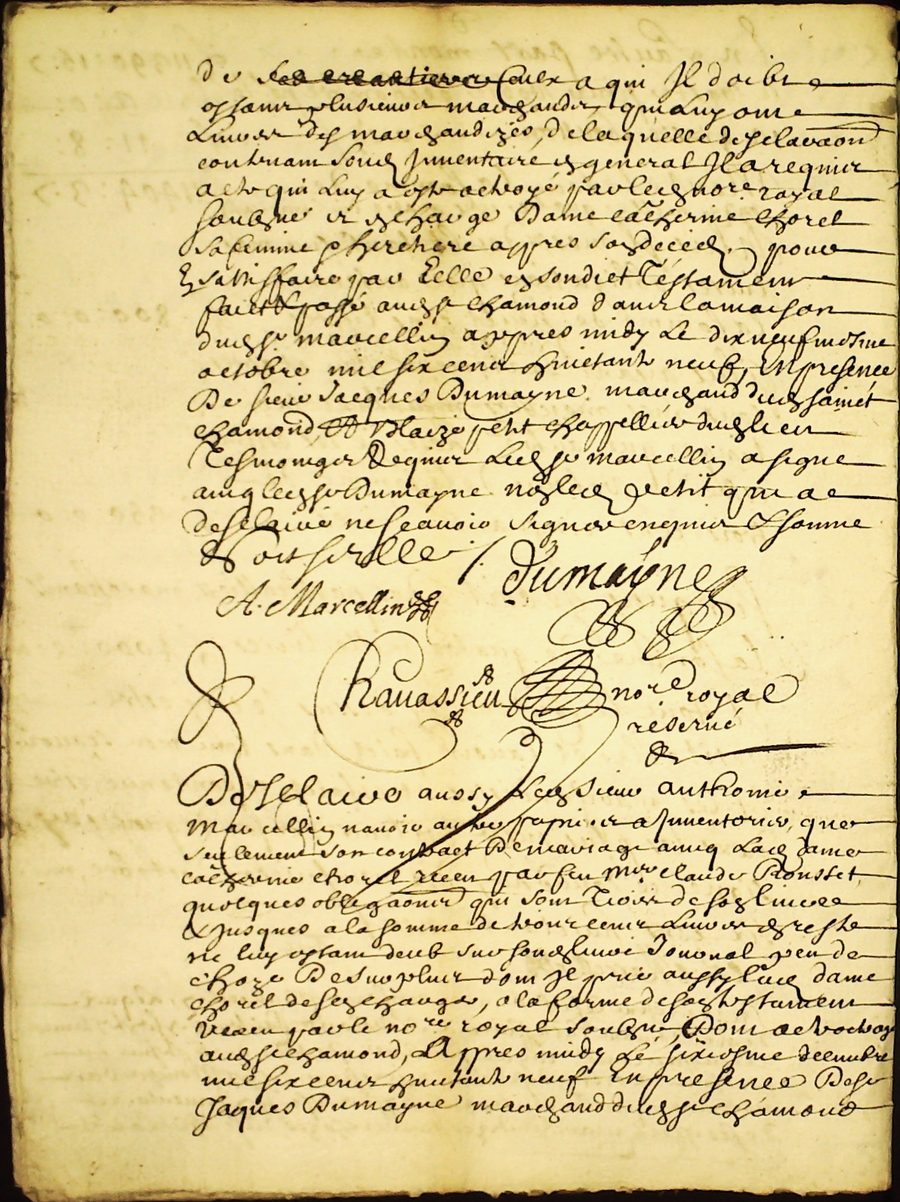 de ses creantiers Ceux a qui Il doibt
estant plusieurs marchandz qui luy ont
Livrer des marchandizes, de laquelle desclaraon
contenant sond Inventaire en general Il a requis
acte qui luy a esté octroyé par led nore royal
soubzne et encharge Dame Catherine Chorel
sa femme et heretiere appres son deced, pour
y satisffaire par Celle en sondict Testament
faict & passé aud St Chamond dans la maison
dud Sr marcellin appres midy Le dix neufviesme
octobre mil six centz huictante neuf, En presence
De sieur Jacques Dumayne marchand dud sainct
chamond, Et Blaize petit chappellier dud lieu
Tesmoingz Requis Led Sr marcellin a signe
avec led Sr Dumayne non led petit qui a
desclairé ne scavoir signer enquis & somme
A. Marcellin
Dumayne
Chavassieu nore royal
réservé
Desclaire aussy led Sieur anthoine
Marcellin navoir autre papier a Inventorier, que
seulement son contract De mariage avec Lad dame
catherine chorel receu par feu Mre claude Rousset
quelques obligaons qui sont Tirees de son livre
& jusques a la somme de trois centz Livres & reste
ne luy estant deub sur sond livre Journal peu de
choze De surpluz dont Il prie aussy lad dame
chorel de sen charger, a la forme de son testament
receu par le nore royal soubzne, Dont acte octroye
aud St chamond, Appres midy Le sixiesme decembre
mil six centz huictante neuf En presence De Sr
Jaques Dumayne marchand dud St chamond